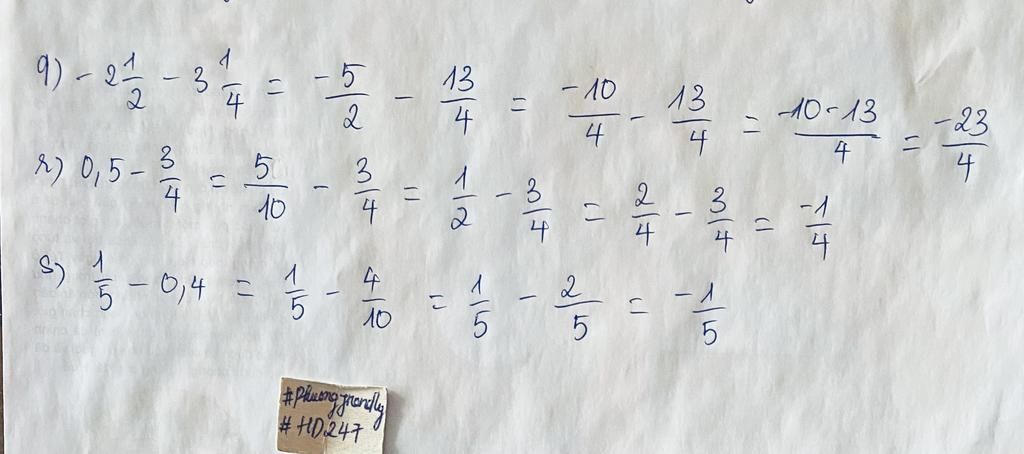 q) - 2 1/2 - 3 1/4 = -5/2 - 13/4 = -10/4 - 13/4 = -10-13/4 = -23/4
r) 0,5 - 3/4 = 5/10 - 3/4 = 1/2 - 3/4 = 2/4 - 3/4 = -1/4
s) 1/5 - 0,4 = 1/5 - 4/10 = 1/5 - 2/5 = -1/5
#HD247